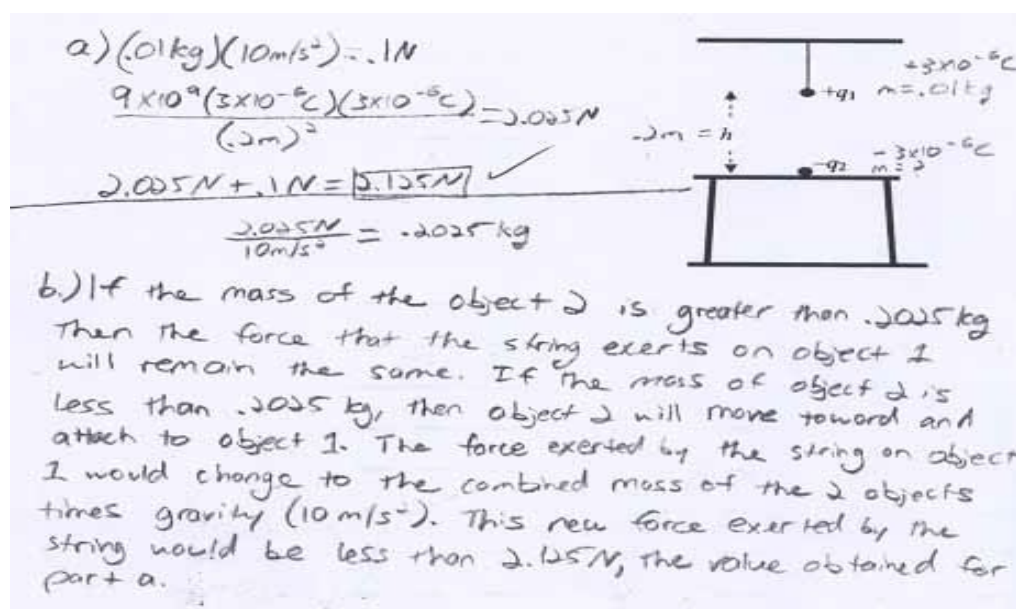 a) (.01kg)(10m/s²) = .1N
9x10⁹(3x10⁻⁶C)(3x10⁻⁶C) = 2.025N
(.2m)²
2.025N + .1N = 2.125N ✓
2.025N = .2025kg
10m/s²
+3x10⁻⁶C
+q₁ m=.01kg
.2m = h
-3x10⁻⁶C
-q₂ m=?
b.) If the mass of the object 2 is greater than .2025kg
Then the force that the string exerts on object 1
will remain the same. If the mass of object 2 is
less than .2025 kg, then object 2 will move toward and
attach to object 1. The force exerted by the string on object
1 would change to the combined mass of the 2 objects
times gravity (10 m/s²). This new force exerted by the
string would be less than 2.125N, the value obtained for
part a.